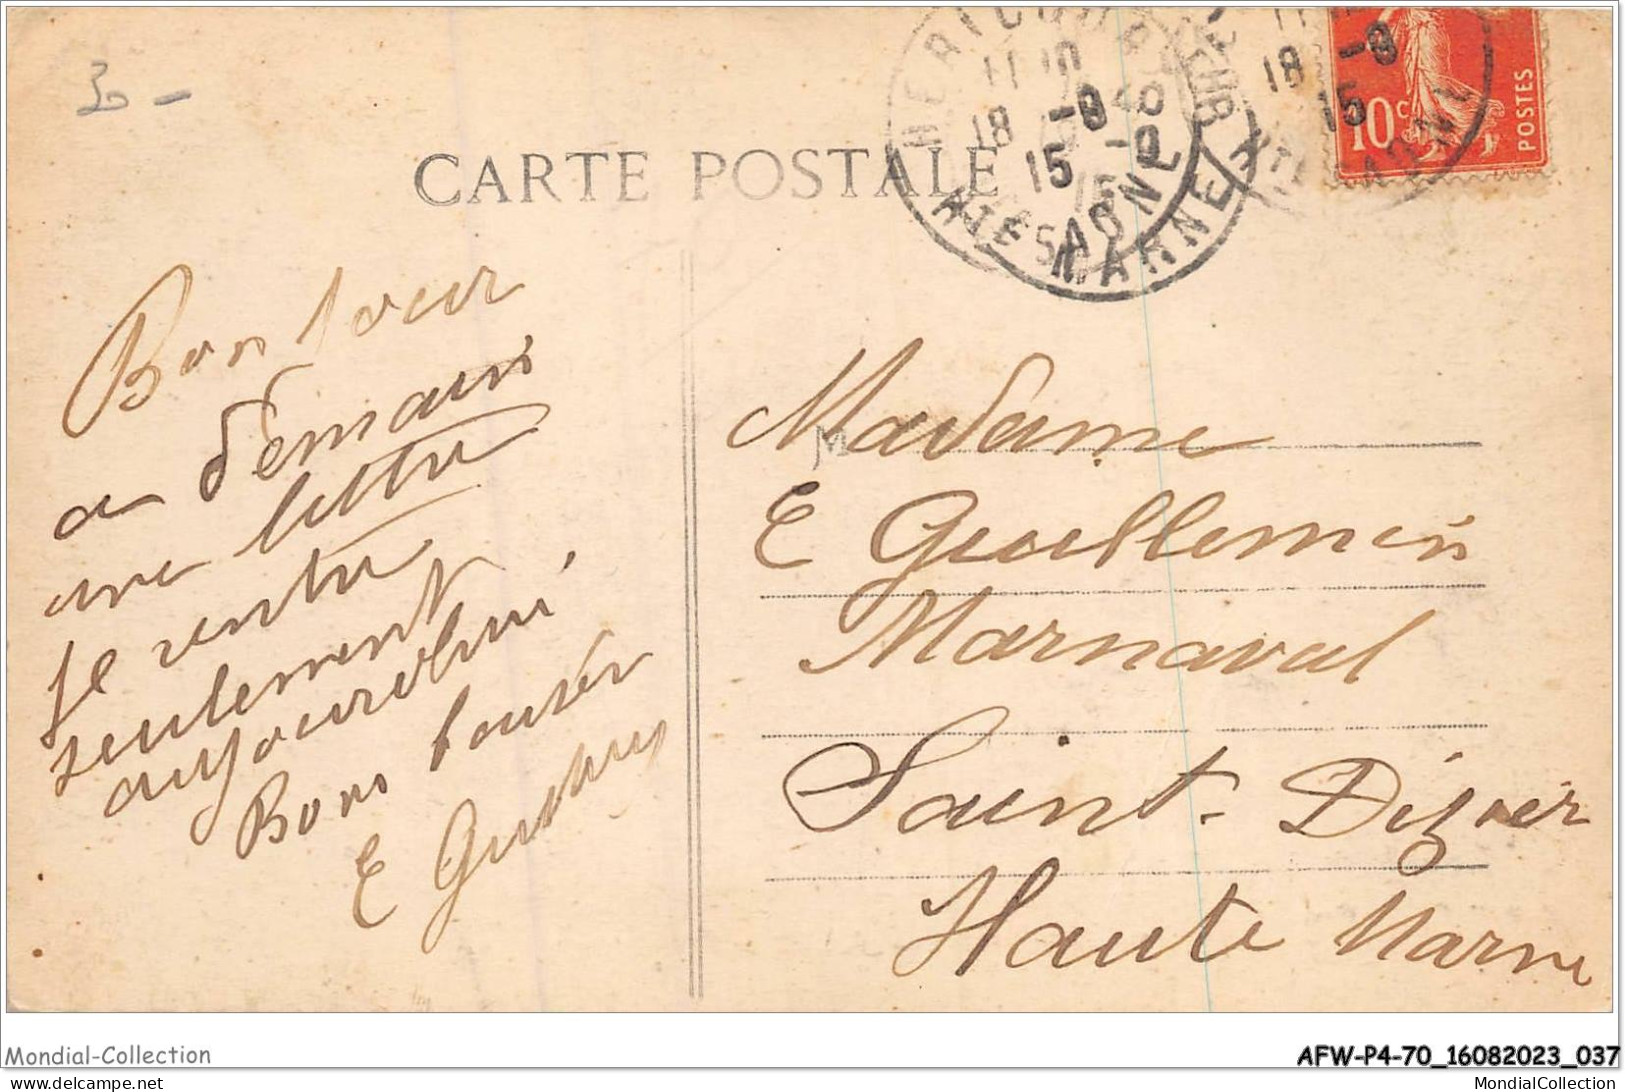 3 -
CARTE POSTALE
HERICOURT
18 -9
15
HTE SAONE
MARNE
18 -9
15
10c
POSTES
Bonjour
a demain
une lettre
je rentre
seulement
aujourdhui
Bons baisér
E
M
Madame
E Guillemin
Marnaval
Saint-Dizier
Haute Marne
Mondial-Collection
AFW-P4-70_16082023_037
delcampe.net
MondialCollection